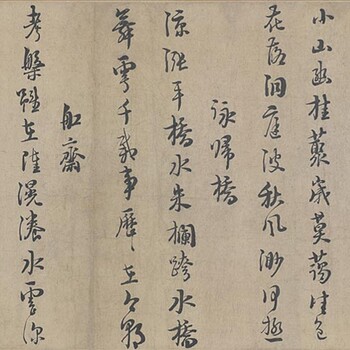 小山幽桂叢歲莫藹佳色
花落洞庭波秋風渺何極
詠歸橋
涼漲平橋水朱欄跨水橋
舞雩千載事歷歷在今朝
船齋
考槃雖在陸滉瀁水雲深